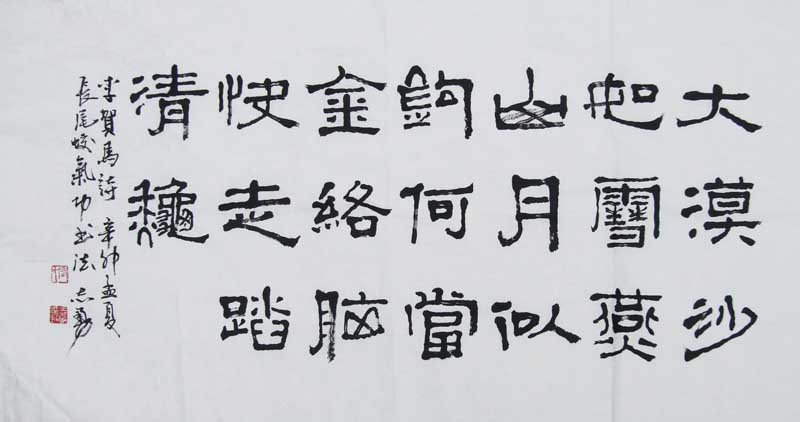 大漠沙
如雪燕
山月似
鉤何當
金絡腦
快走踏
清龝
李賀馬詩 辛卯孟夏
長尾蛟氣功書法 志勇